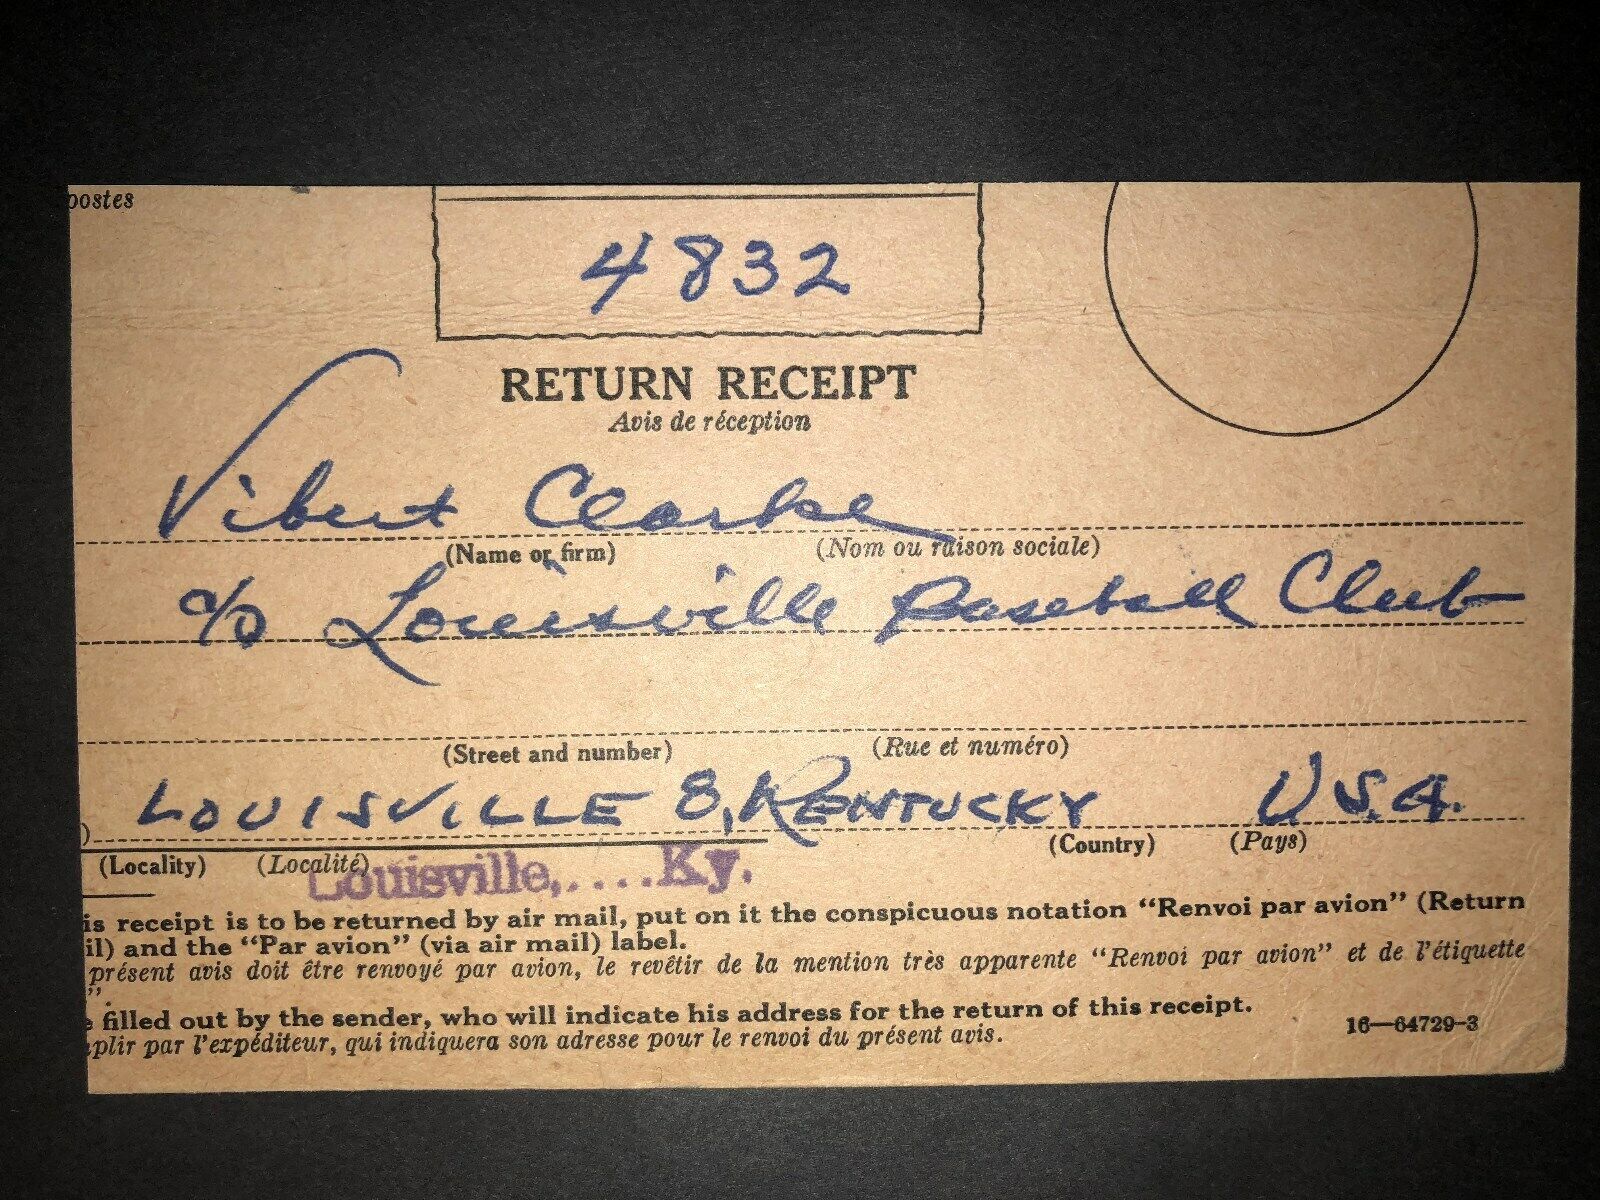 postes
4832
RETURN RECEIPT
Avis de réception
Vibert Clarke
(Name or firm) (Nom ou raison sociale)
c/o Louisville Baseball Club
(Street and number) (Rue et numéro)
LOUISVILLE 8, KENTUCKY U.S.A.
) (Country) (Pays)
(Locality) (Localité)
Louisville,....Ky.
is receipt is to be returned by air mail, put on it the conspicuous notation “Renvoi par avion” (Return
il) and the “Par avion” (via air mail) label.
présent avis doit être renvoyé par avion, le revêtir de la mention très apparente “Renvoi par avion” et de l'étiquette
”.
e filled out by the sender, who will indicate his address for the return of this receipt.
plir par l'expéditeur, qui indiquera son adresse pour le renvoi du présent avis.
16—64729-3